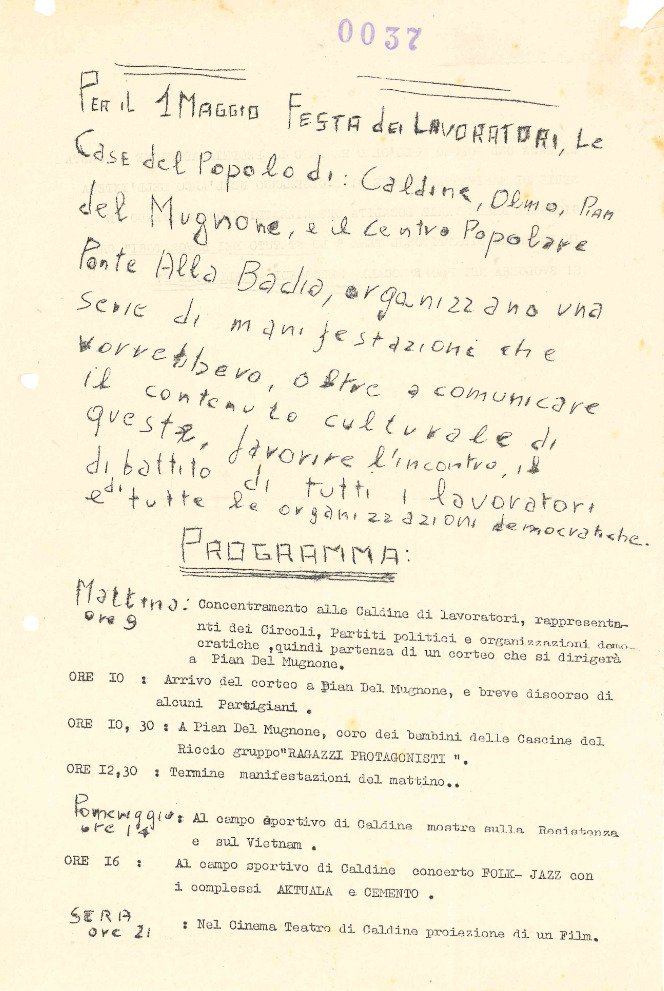 0037
PER il 1 MAGGIO FESTA dei LAVORATORI, Le
Case del Popolo di: Caldine, Olmo, Pian
del Mugnone, e il Centro Popolare
Ponte Alla Badia, organizzano una
serie di manifestazioni che
vorrebbero, oltre a comunicare
il contenuto culturale di
queste, favorire l'incontro, il
dibattito di tutti i lavoratori
e di tutte le organizzazioni democratiche.
PROGRAMMA:
Mattina: Concentramento alle Caldine di lavoratori, rappresenta-
ore 9 nti dei Circoli, Partiti politici e organizzazioni demo-
cratiche ,quindi partenza di un corteo che si dirigerà
a Pian Del Mugnone.
ORE IO : Arrivo del corteo a Pian Del Mugnone, e breve discorso di
alcuni Partigiani .
ORE IO, 30 : A Pian Del Mugnone, coro dei bambini delle Cascine del
Riccio gruppo"RAGAZZI PROTAGONISTI ".
ORE I2,30 : Termine manifestazioni del mattino..
Pomeriggio: Al campo sportivo di Caldine mostre sulla Resistenza
ore 14 e sul Vietnam .
ORE I6 : Al campo sportivo di Caldine concerto FOLK- JAZZ con
i complessi AKTUALA e CEMENTO .
SERA
ore 21 : Nel Cinema Teatro di Caldine proiezione di un Film.